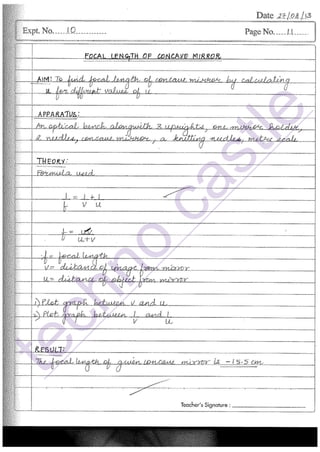 Date 27/08/13
Expt. No. 10
Page No. 11
FOCAL LENGTH OF CONCAVE MIRROR
AIM: To find focal length of concave mirror by calculating
u for different values of u.
APPARATUS:
An optical bench alongwith 3 uprights, one mirror holder,
2 needles, concave mirror, a knitting needles, metre scale
THEORY:
Formula used
1/f = 1/v + 1/u
f = uv/u+v
f = focal length
v = distance of image from mirror
u = distance of object from mirror
i) Plot graph between v and u.
ii) Plot graph between 1/v and 1/u
RESULT:
The focal length of given concave mirror is -15.5 cm
Teacher's Signature :
techno castle